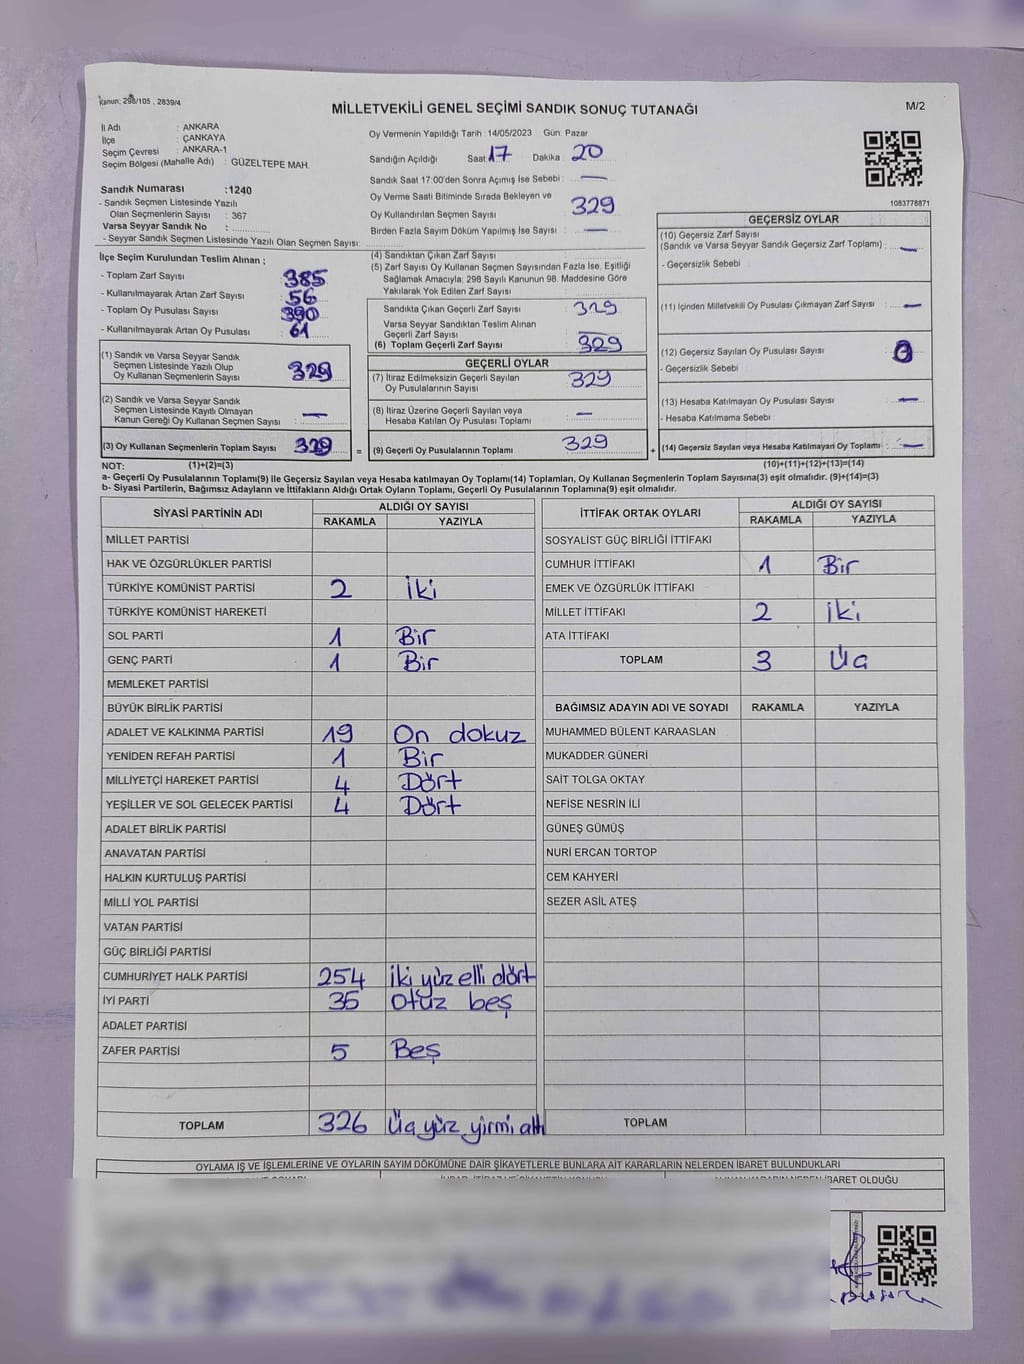 Kanun: 298/105 , 2839/4
MİLLETVEKİLİ GENEL SEÇİMİ SANDIK SONUÇ TUTANAĞI
M/2
İl Adı : ANKARA
İlçe : ÇANKAYA
Seçim Çevresi : ANKARA-1
Seçim Bölgesi (Mahalle Adı) : GÜZELTEPE MAH.
Oy Vermenin Yapıldığı Tarih : 14/05/2023 Gün: Pazar
Sandığın Açıldığı Saat: 17 Dakika: 20
Sandık Saat 17:00'den Sonra Açımış İse Sebebi : —
Oy Verme Saati Bitiminde Sırada Bekleyen ve
Oy Kullandırılan Seçmen Sayısı : 329
Birden Fazla Sayım Döküm Yapılmış İse Sayısı : —
1083778871
Sandık Numarası :1240
- Sandık Seçmen Listesinde Yazılı
Olan Seçmenlerin Sayısı : 367
Varsa Seyyar Sandık No :
- Seyyar Sandık Seçmen Listesinde Yazılı Olan Seçmen Sayısı:
İlçe Seçim Kurulundan Teslim Alınan ;
- Toplam Zarf Sayısı : 385
- Kullanılmayarak Artan Zarf Sayısı : 56
- Toplam Oy Pusulası Sayısı : 390
- Kullanılmayarak Artan Oy Pusulası : 61
(1) Sandık ve Varsa Seyyar Sandık
Seçmen Listesinde Yazılı Olup
Oy Kullanan Seçmenlerin Sayısı : 329
(2) Sandık ve Varsa Seyyar Sandık
Seçmen Listesinde Kayıtlı Olmayan
Kanun Gereği Oy Kullanan Seçmen Sayısı : —
(3) Oy Kullanan Seçmenlerin Toplam Sayısı : 329 =
(4) Sandıktan Çıkan Zarf Sayısı :
(5) Zarf Sayısı Oy Kullanan Seçmen Sayısından Fazla İse, Eşitliği
Sağlamak Amacıyla; 298 Sayılı Kanunun 98. Maddesine Göre
Yakılarak Yok Edilen Zarf Sayısı :
Sandıkta Çıkan Geçerli Zarf Sayısı : 329
Varsa Seyyar Sandıktan Teslim Alınan
Geçerli Zarf Sayısı : —
(6) Toplam Geçerli Zarf Sayısı : 329
GEÇERLİ OYLAR
(7) İtiraz Edilmeksizin Geçerli Sayılan
Oy Pusulalarının Sayısı : 329
(8) İtiraz Üzerine Geçerli Sayılan veya
Hesaba Katılan Oy Pusulası Toplamı : —
(9) Geçerli Oy Pusulalarının Toplamı : 329 +
GEÇERSİZ OYLAR
(10) Geçersiz Zarf Sayısı
(Sandık ve Varsa Seyyar Sandık Geçersiz Zarf Toplamı) : —
- Geçersizlik Sebebi :
(11) İçinden Milletvekili Oy Pusulası Çıkmayan Zarf Sayısı : —
(12) Geçersiz Sayılan Oy Pusulası Sayısı :
- Geçersizlik Sebebi :
(13) Hesaba Katılmayan Oy Pusulası Sayısı : —
- Hesaba Katılmama Sebebi :
(14) Geçersiz Sayılan veya Hesaba Katılmayan Oy Toplamı : —
NOT: (1)+(2)=(3) (10)+(11)+(12)+(13)=(14)
a- Geçerli Oy Pusulalarının Toplamı(9) ile Geçersiz Sayılan veya Hesaba katılmayan Oy Toplamı(14) Toplamları, Oy Kullanan Seçmenlerin Toplam Sayısına(3) eşit olmalıdır. (9)+(14)=(3)
b- Siyasi Partilerin, Bağımsız Adayların ve İttifakların Aldığı Ortak Oyların Toplamı, Geçerli Oy Pusulalarının Toplamına(9) eşit olmalıdır.
SİYASİ PARTİNİN ADI
ALDIĞI OY SAYISI
RAKAMLA YAZIYLA
MİLLET PARTİSİ
HAK VE ÖZGÜRLÜKLER PARTİSİ
TÜRKİYE KOMÜNİST PARTİSİ 2 İki
TÜRKİYE KOMÜNİST HAREKETİ
SOL PARTİ 1 Bir
GENÇ PARTİ 1 Bir
MEMLEKET PARTİSİ
BÜYÜK BİRLİK PARTİSİ
ADALET VE KALKINMA PARTİSİ 19 On dokuz
YENİDEN REFAH PARTİSİ 1 Bir
MİLLİYETÇİ HAREKET PARTİSİ 4 Dört
YEŞİLLER VE SOL GELECEK PARTİSİ 4 Dört
ADALET BİRLİK PARTİSİ
ANAVATAN PARTİSİ
HALKIN KURTULUŞ PARTİSİ
MİLLİ YOL PARTİSİ
VATAN PARTİSİ
GÜÇ BİRLİĞİ PARTİSİ
CUMHURİYET HALK PARTİSİ 254 İki yüz elli dört
İYİ PARTİ 35 Otuz beş
ADALET PARTİSİ
ZAFER PARTİSİ 5 Beş
TOPLAM 326 Üç yüz yirmi altı
İTTİFAK ORTAK OYLARI
ALDIĞI OY SAYISI
RAKAMLA YAZIYLA
SOSYALİST GÜÇ BİRLİĞİ İTTİFAKI
CUMHUR İTTİFAKI 1 Bir
EMEK VE ÖZGÜRLÜK İTTİFAKI
MİLLET İTTİFAKI 2 İki
ATA İTTİFAKI
TOPLAM 3 Üç
BAĞIMSIZ ADAYIN ADI VE SOYADI RAKAMLA YAZIYLA
MUHAMMED BÜLENT KARAASLAN
MUKADDER GÜNERİ
SAİT TOLGA OKTAY
NEFİSE NESRİN İLİ
GÜNEŞ GÜMÜŞ
NURİ ERCAN TORTOP
CEM KAHYERİ
SEZER ASİL ATEŞ
TOPLAM
OYLAMA İŞ VE İŞLEMLERİNE VE OYLARIN SAYIM DÖKÜMÜNE DAİR ŞİKAYETLERLE BUNLARA AİT KARARLARIN NELERDEN İBARET BULUNDUKLARI
İBARET OLDUĞU